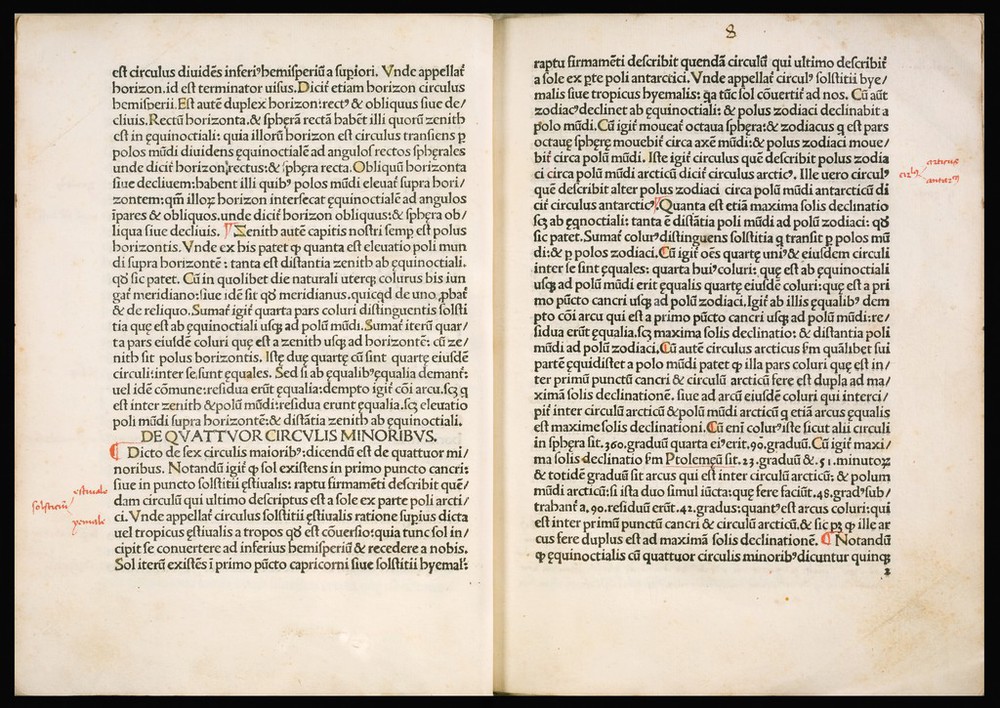 est circulus diuidēs inferi⁹hemisperiū a supiori. Vnde appellať
horizon.id est terminator uisus.Diciť etiam horizon circulus
hemisperii.Est autē duplex horizon:rect⁹ & obliquus siue de/
cliuis.Rectū horizonta.& sphęrā rectā habēt illi quorū zenith
est in ęquinoctiali: quia illorū horizon est circulus transiens p
polos mūdi diuidens ęquinoctialē ad angulos rectos sphęrales
unde diciť horizon rectus:& sphęra recta.Obliquū horizonta
siue decliuem:habent illi quib⁹ polos mūdi eleuať supra hori/
zontem:qm̄ illoꝝ horizon intersecat ęquinoctialē ad angulos
īpares & obliquos.unde diciť horizon obliquus:& sphęra ob/
liqua siue decliuis. ¶ Zenith autē capitis nostri semp est polus
horizontis.Vnde ex his patet ꝙ quanta est eleuatio poli mun
di supra horizontē : tanta est distantia zenith ab ęquinoctiali.
qđ sic patet. Cū in quolibet die naturali uterqꝫ colurus bis iun
gať meridiano:siue idē sit qđ meridianus.quicqđ de uno ꝓbať
& de reliquo.Sumať igiť quarta pars coluri distinguentis solsti
tia que est ab ęquinoctiali usqꝫ ad polū mūdi.Sumať iterū quar/
ta pars eiusdē coluri quę est a zenith usqꝫ ad horizontē: cū ze/
nith sit polus horizontis. Iste duę quartę cū sint quartę eiusdē
circuli:inter se sunt equales. Sed si ab equalib⁹equalia demanť:
uel idē cōmune:residua erūt ęqualia:dempto igiť cōi arcu.scꝫ q
est inter zenith &polū mūdi:residua erunt ęqualia.scꝫ eleuatio
poli mūdi supra horizontē:& distātia zenith ab ęquinoctiali.
DE QVATTVOR CIRCVLIS MINORIBVS.
¶ Dicto de sex circulis maiorib⁹:dicendū est de quattuor mi/
noribus. Notandū igiť ꝙ sol existens in primo puncto cancri:
siue in puncto solstitii ęstiualis: raptu firmamēti describit quē/
dam circulū qui ultimo descriptus est a sole ex parte poli arcti/
ci.Vnde appellať circulus solstitii ęstiualis ratione supius dicta
uel tropicus ęstiualis a tropos qđ est cōuersio:quia tunc sol in/
cipit se conuertere ad inferius hemisperiū & recedere a nobis.
Sol iterū existēs ī primo pūcto capricorni siue solstitii hyemal⁝
estiuale
solstitiū
yemale
8
raptu firmamēti describit quendā circulū qui ultimo describiť
a sole ex pte poli antarctici.Vnde appellať circul⁹ solstitii hye/
malis siue tropicus hyemalis: qa tūc sol cōuertiť ad nos. Cū aūt
zodiac⁹declinet ab ęquinoctiali: & polus zodiaci declinabit a
polo mūdi.Cū igiť moueať octaua sphęra:& zodiacus q est pars
octauę sphęrę mouebiť circa axē mūdi:& polus zodiaci moue/
biť circa polū mūdi. Iste igiť circulus quē describit polus zodia
ci circa polū mūdi arcticū diciť circulus arctic⁹. Ille uero circul⁹
quē describit alter polus zodiaci circa polū mūdi antarcticū di
ciť circulus antarctic⁹.¶Quanta est etiā maxima solis declinatio
scꝫ ab ęqnoctiali: tanta ē distātia poli mūdi ad polū zodiaci: qđ
sic patet.Sumať colur⁹distinguens solstitia q transit p polos mū
di:& p polos zodiaci.Cū igiť oēs quartę uni⁹& eiusdem circuli
inter se sint ęquales: quarta hui⁹coluri: quę est ab ęquinoctiali
usqꝫ ad polū mūdi erit ęqualis quartę eiusdē coluri:quę est a pri
mo pūcto cancri usqꝫ ad polū zodiaci.Igiť ab illis ęqualib⁹ dem
pto cōi arcu qui est a primo pūcto cancri usqꝫ ad polū mūdi:re/
sidua erūt ęqualia.scꝫ maxima solis declinatio: & distantia poli
mūdi ad polū zodiaci.Cū autē circulus arcticus fm quālibet sui
partē ęquidistet a polo mūdi patet ꝙ illa pars coluri quę est in/
ter primū punctū cancri & circulū arcticū fere est dupla ad ma/
ximā solis declinationē. siue ad arcū eiusdē coluri qui interci/
piť inter circulū arcticū &polū mūdi arcticū q etiā arcus ęqualis
est maxime solis declinationi. Cū enī colur⁹iste sicut alii circuli
in sphęra sit.360.graduū quarta ei⁹erit.90.graduū.Cū igiť maxi/
ma solis declinatio fm Ptolemęū sit.23.graduū &.51.minutoꝝ
& totidē graduū sit arcus qui est inter circulū arcticū:& polum
mūdi arcticū:si ista duo simul iūcta:quę fere faciūt.48.grad⁹sub/
trahanť a.90.residuū erūt.42.gradus:quant⁹est arcus coluri:qui
est inter primū punctū cancri & circulū arcticū.& sic pꝫ ꝙ ille ar
cus fere duplus est ad maximā solis declinationē. ¶ Notandū
ꝙ ęquinoctialis cū quattuor circulis minorib⁹dicuntur quinqꝫ
2